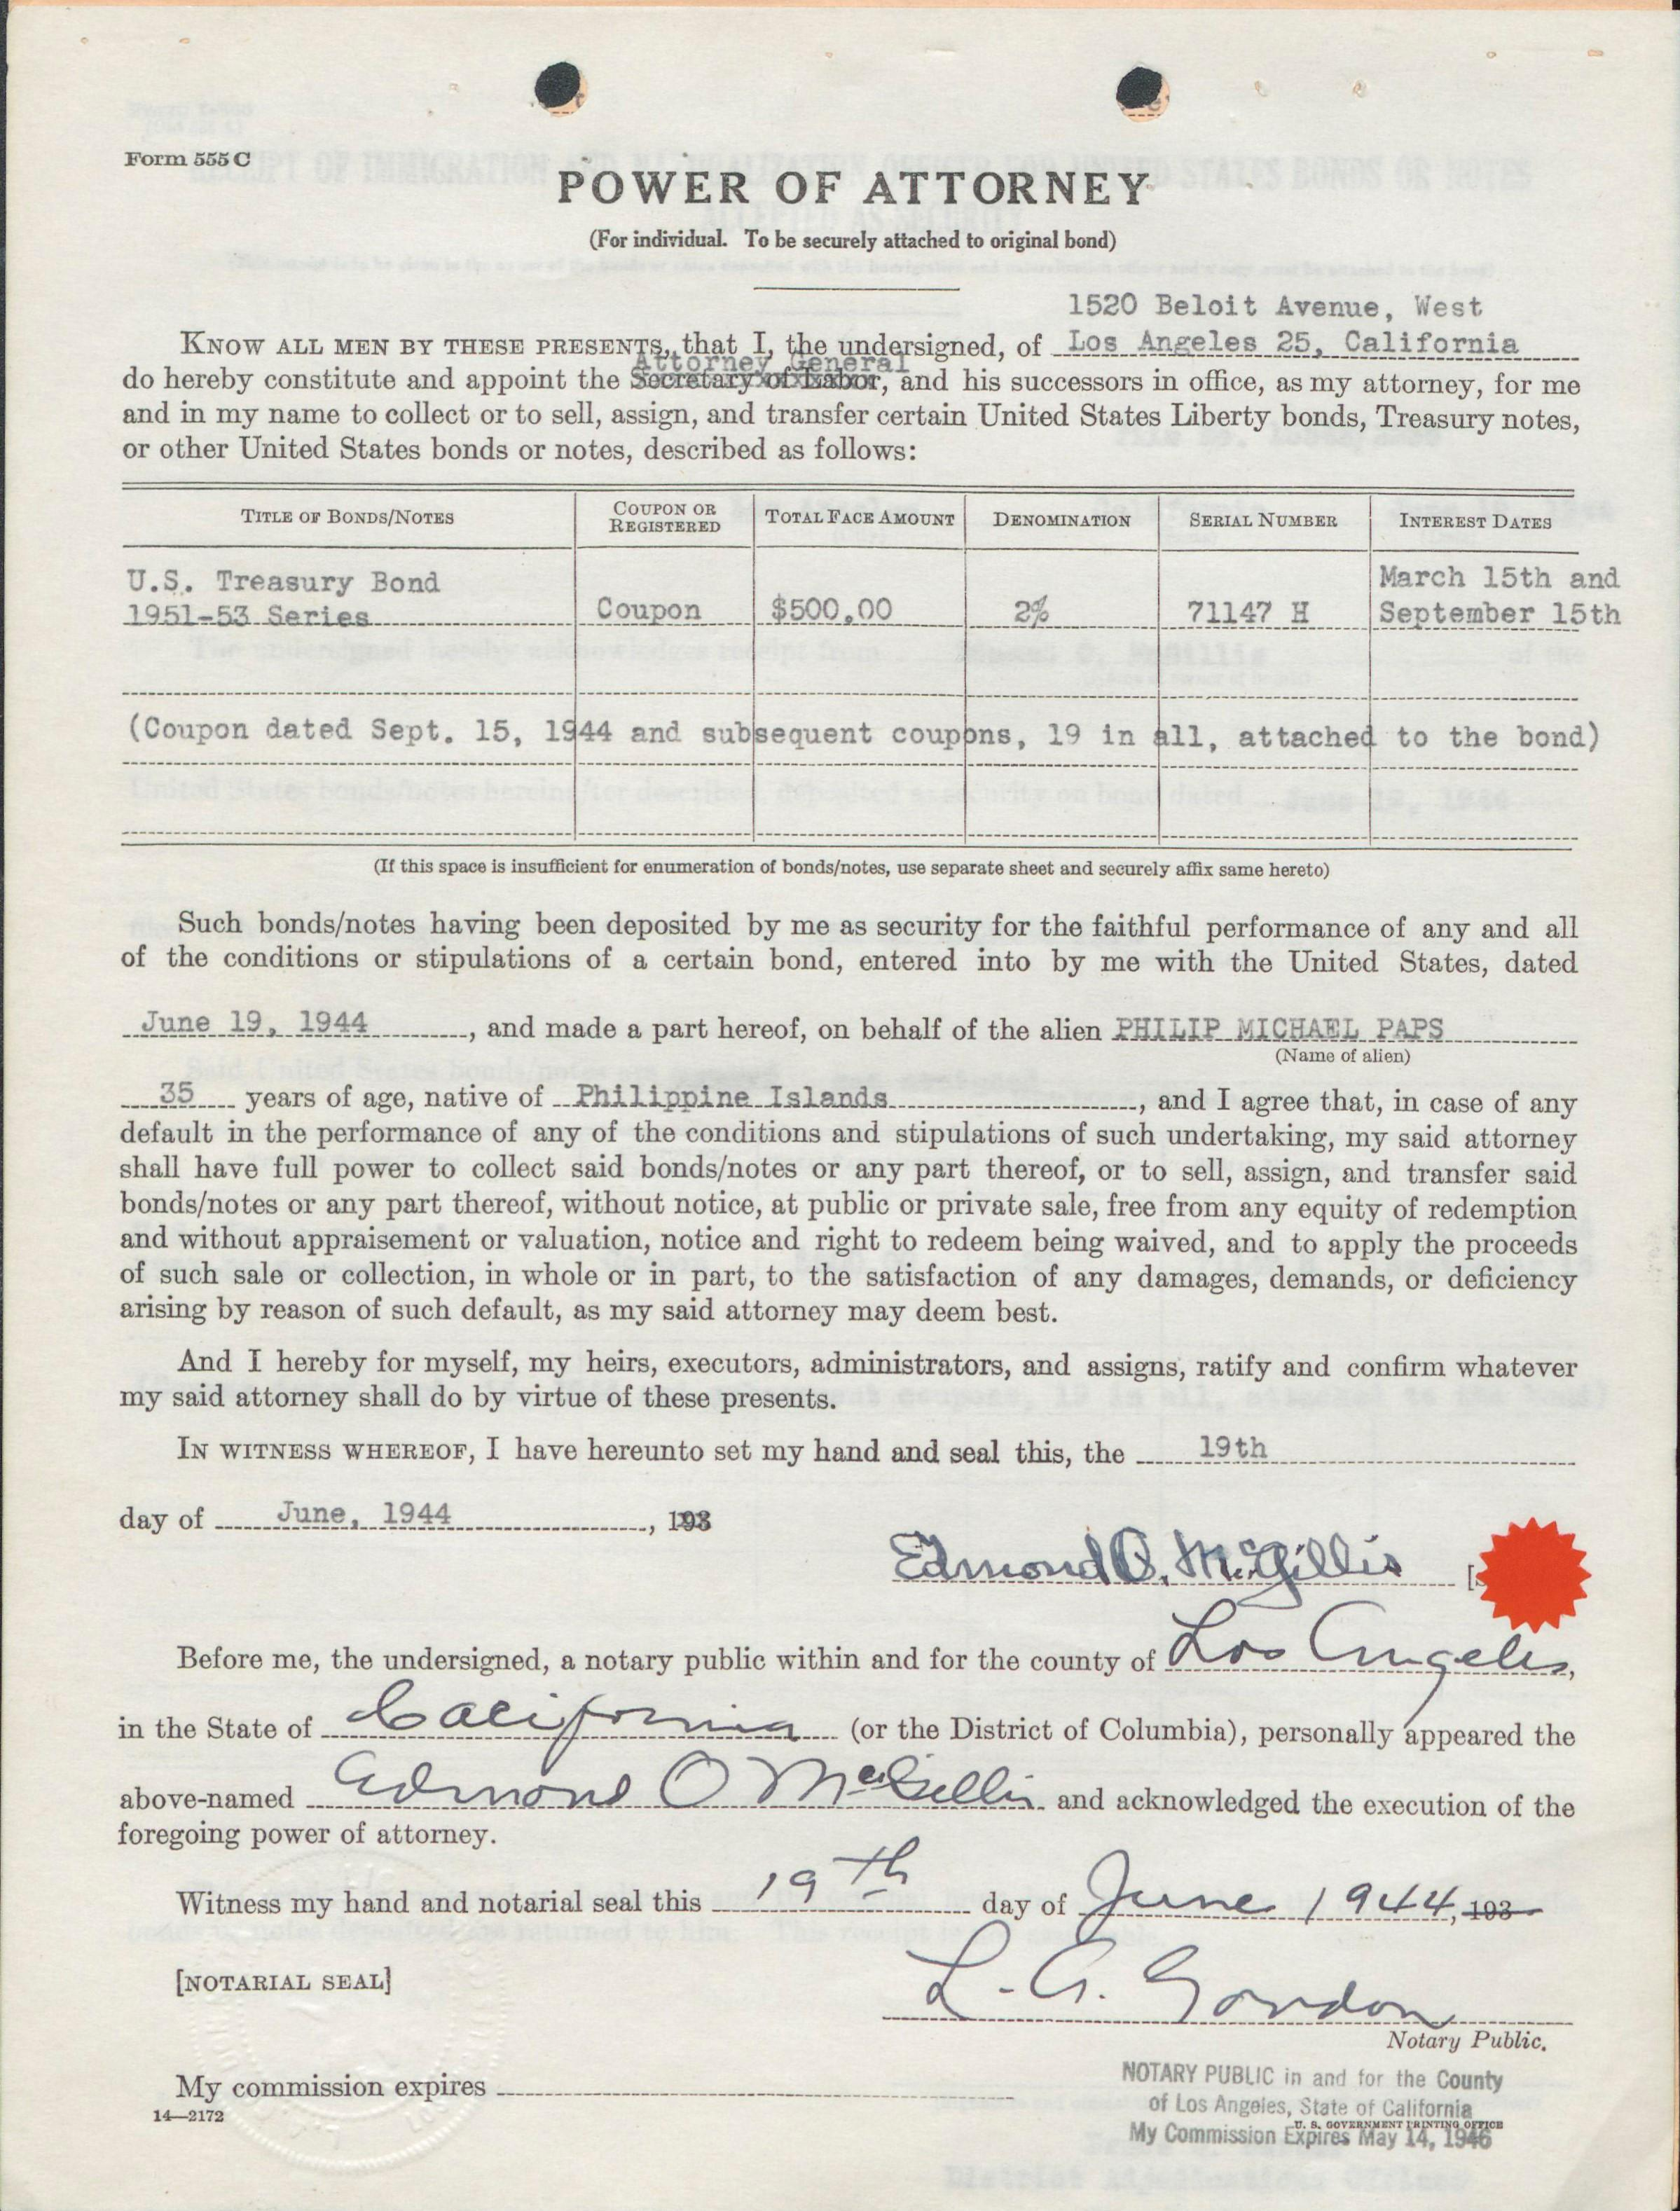 Form 555 C
POWER OF ATTORNEY
(For individual. To be securely attached to original bond)
1520 Beloit Avenue, West
KNOW ALL MEN BY THESE PRESENTS, that I, the undersigned, of Los Angeles 25, California
Attorney General
do hereby constitute and appoint the Secretary of Labor, and his successors in office, as my attorney, for me
and in my name to collect or to sell, assign, and transfer certain United States Liberty bonds, Treasury notes,
or other United States bonds or notes, described as follows:
TITLE OF BONDS/NOTES COUPON OR REGISTERED TOTAL FACE AMOUNT DENOMINATION SERIAL NUMBER INTEREST DATES
U.S. Treasury Bond March 15th and
1951-53 Series Coupon $500.00 2% 71147 H September 15th
(Coupon dated Sept. 15, 1944 and subsequent coupons, 19 in all, attached to the bond)
(If this space is insufficient for enumeration of bonds/notes, use separate sheet and securely affix same hereto)
Such bonds/notes having been deposited by me as security for the faithful performance of any and all
of the conditions or stipulations of a certain bond, entered into by me with the United States, dated
June 19, 1944, and made a part hereof, on behalf of the alien PHILIP MICHAEL PAPS
(Name of alien)
35 years of age, native of Philippine Islands, and I agree that, in case of any
default in the performance of any of the conditions and stipulations of such undertaking, my said attorney
shall have full power to collect said bonds/notes or any part thereof, or to sell, assign, and transfer said
bonds/notes or any part thereof, without notice, at public or private sale, free from any equity of redemption
and without appraisement or valuation, notice and right to redeem being waived, and to apply the proceeds
of such sale or collection, in whole or in part, to the satisfaction of any damages, demands, or deficiency
arising by reason of such default, as my said attorney may deem best.
And I hereby for myself, my heirs, executors, administrators, and assigns, ratify and confirm whatever
my said attorney shall do by virtue of these presents.
IN WITNESS WHEREOF, I have hereunto set my hand and seal this, the 19th
day of June, 1944, 193
Edmond O. McGillis
Before me, the undersigned, a notary public within and for the county of Los Angeles,
in the State of California (or the District of Columbia), personally appeared the
above-named Edmond O McGillis and acknowledged the execution of the
foregoing power of attorney.
Witness my hand and notarial seal this 19th day of June 1944, 193
[NOTARIAL SEAL]
L. A. Gordon
Notary Public.
My commission expires
NOTARY PUBLIC in and for the County
of Los Angeles, State of California
14—2172 U. S. GOVERNMENT PRINTING OFFICE
My Commission Expires May 14, 1946